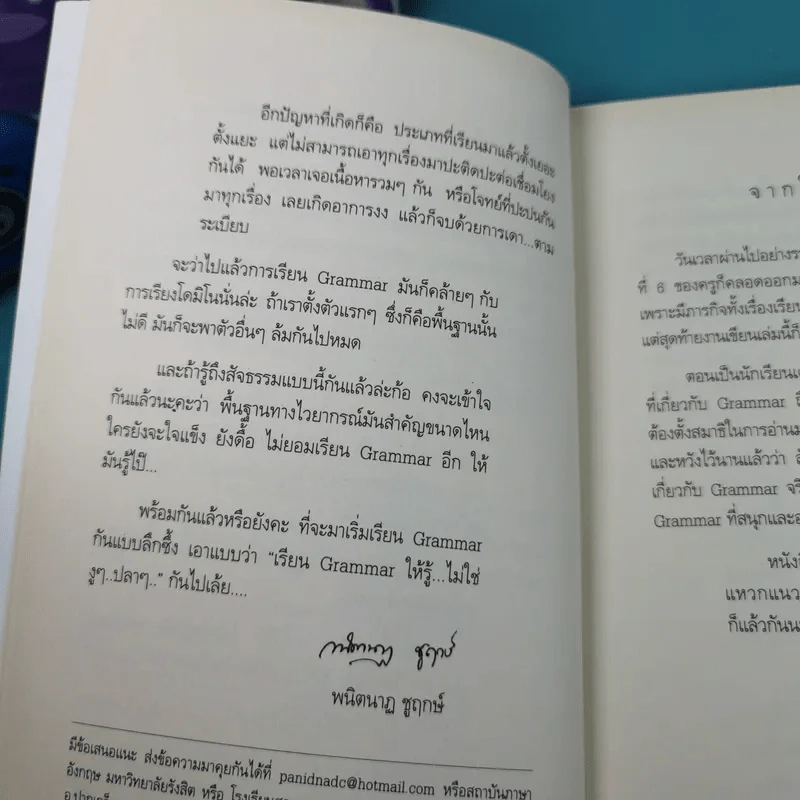 อีกปัญหาที่เกิดก็คือ ประเภทที่เรียนมาแล้วตั้งเยอะ
ตั้งแยะ แต่ไม่สามารถเอาทุกเรื่องมาปะติดปะต่อเชื่อมโยง
กันได้ พอเวลาเจอเนื้อหารวมๆ กัน หรือโจทย์ที่ปะปนกัน
มาทุกเรื่อง เลยเกิดอาการงง แล้วก็จบด้วยการเดา...ตาม
ระเบียบ
จะว่าไปแล้วการเรียน Grammar มันก็คล้ายๆ กับ
การเรียงโดมิโนนั่นล่ะ ถ้าเราตั้งตัวแรกๆ ซึ่งก็คือพื้นฐานนั้น
ไม่ดี มันก็จะพาตัวอื่นๆ ล้มกันไปหมด
และถ้ารู้ถึงสัจธรรมแบบนี้กันแล้วล่ะก้อ คงจะเข้าใจ
กันแล้วนะคะว่า พื้นฐานทางไวยากรณ์มันสำคัญขนาดไหน
ใครยังจะใจแข็ง ยังดื้อ ไม่ยอมเรียน Grammar อีก ให้
มันรู้ไป๊...
พร้อมกันแล้วหรือยังคะ ที่จะมาเริ่มเรียน Grammar
กันแบบลึกซึ้ง เอาแบบว่า “เรียน Grammar ให้รู้...ไม่ใช่
งูๆ..ปลาๆ..” กันไปเล้ย....
พนิตนาฏ ชูฤกษ์
พนิตนาฏ ชูฤกษ์
มีข้อเสนอแนะ ส่งข้อความมาคุยกันได้ที่ panidnadc@hotmail.com หรือสถาบันภาษา
อังกฤษ มหาวิทยาลัยรังสิต หรือ โรงเรียน
อ.ปากเกร็ด
จาก
วันเวลาผ่านไปอย่าง
ที่ 6 ของครูก็คลอดออกม
เพราะมีภารกิจทั้งเรื่องเรียน
แต่สุดท้ายงานเขียนเล่มนี้ก็
ตอนเป็นนักเรียน
ที่เกี่ยวกับ Grammar
ต้องตั้งสมาธิในการอ่าน
และหวังไว้นานแล้วว่า
เกี่ยวกับ Grammar
Grammar ที่สนุกและ
หนังสื
แหวกแนว
ก็แล้วกันน